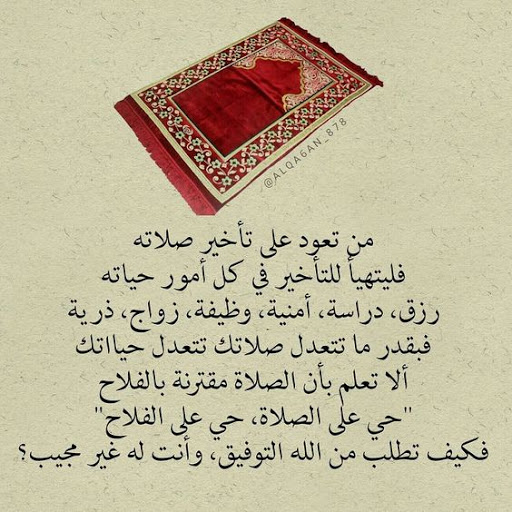 @ALQA6AN_878
من تعود على تأخير صلاته
فليتهيأ للتأخير في كل أمور حياته
رزق، دراسة، أمنية، وظيفة، زواج، ذرية
فبقدر ما تتعدل صلاتك تتعدل حيااتك
ألا تعلم بأن الصلاة مقترنة بالفلاح
"حي على الصلاة، حي على الفلاح"
فكيف تطلب من الله التوفيق، وأنت له غير مجيب؟